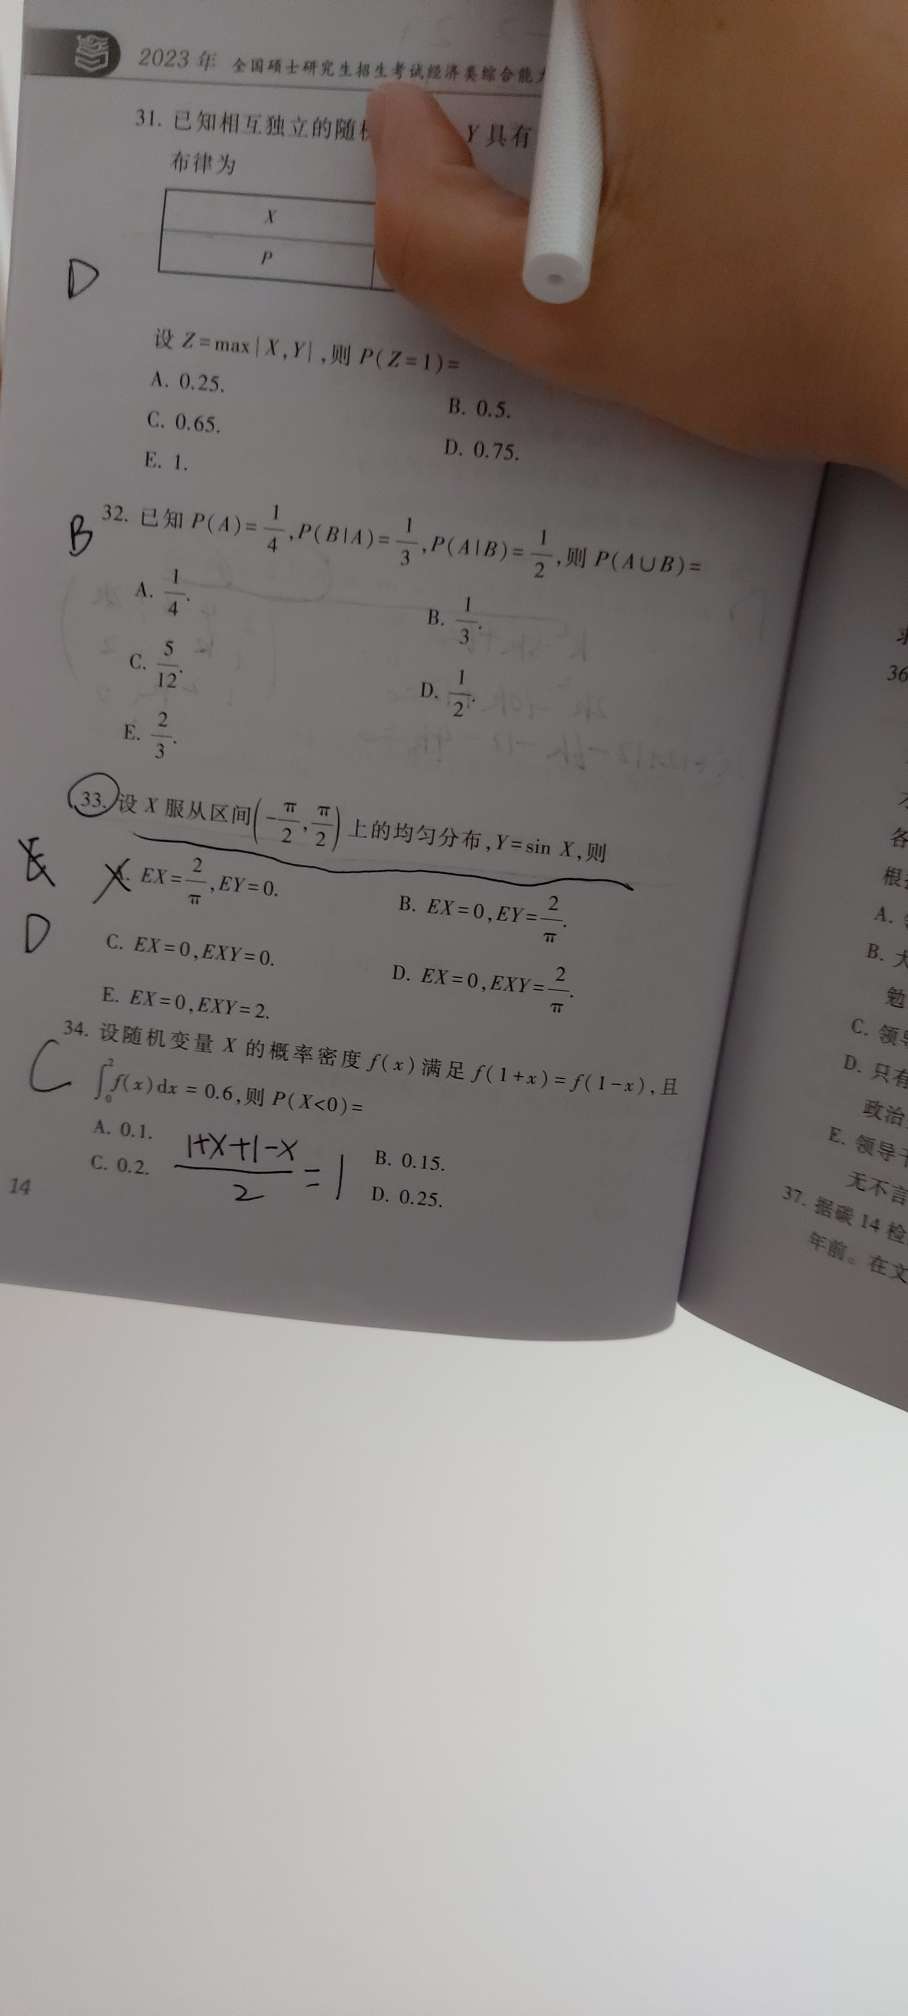 2023年 全国硕士研究生招生考试经济类综合能
31. 已知相互独立的随 Y 具有
布律为
X
P
D
设 Z=max|X,Y|,则 P(Z=1)=
A. 0.25.
B. 0.5.
C. 0.65.
D. 0.75.
E. 1.
B
32. 已知 P(A)=1/4,P(B|A)=1/3,P(A|B)=1/2,则 P(A∪B)=
A. 1/4.
B. 1/3.
C. 5/12.
D. 1/2.
E. 2/3.
33. 设 X 服从区间(-π/2,π/2)上的均匀分布,Y=sin X,则
EX=2/π,EY=0.
B. EX=0,EY=2/π.
D
C. EX=0,EXY=0.
D. EX=0,EXY=2/π.
E. EX=0,EXY=2.
34. 设随机变量 X 的概率密度 f(x)满足 f(1+x)=f(1-x),且
C
∫₀²f(x)dx = 0.6,则 P(X<0)=
A. 0.1.
B. 0.15.
C. 0.2.
D. 0.25.
(1+X+1-X)/2 = 1
14
36
各
根
A.
B. 大
勉
C. 领导
D. 只有
政治
E. 领导干
无不言
37. 据碳 14 检
年前。在文